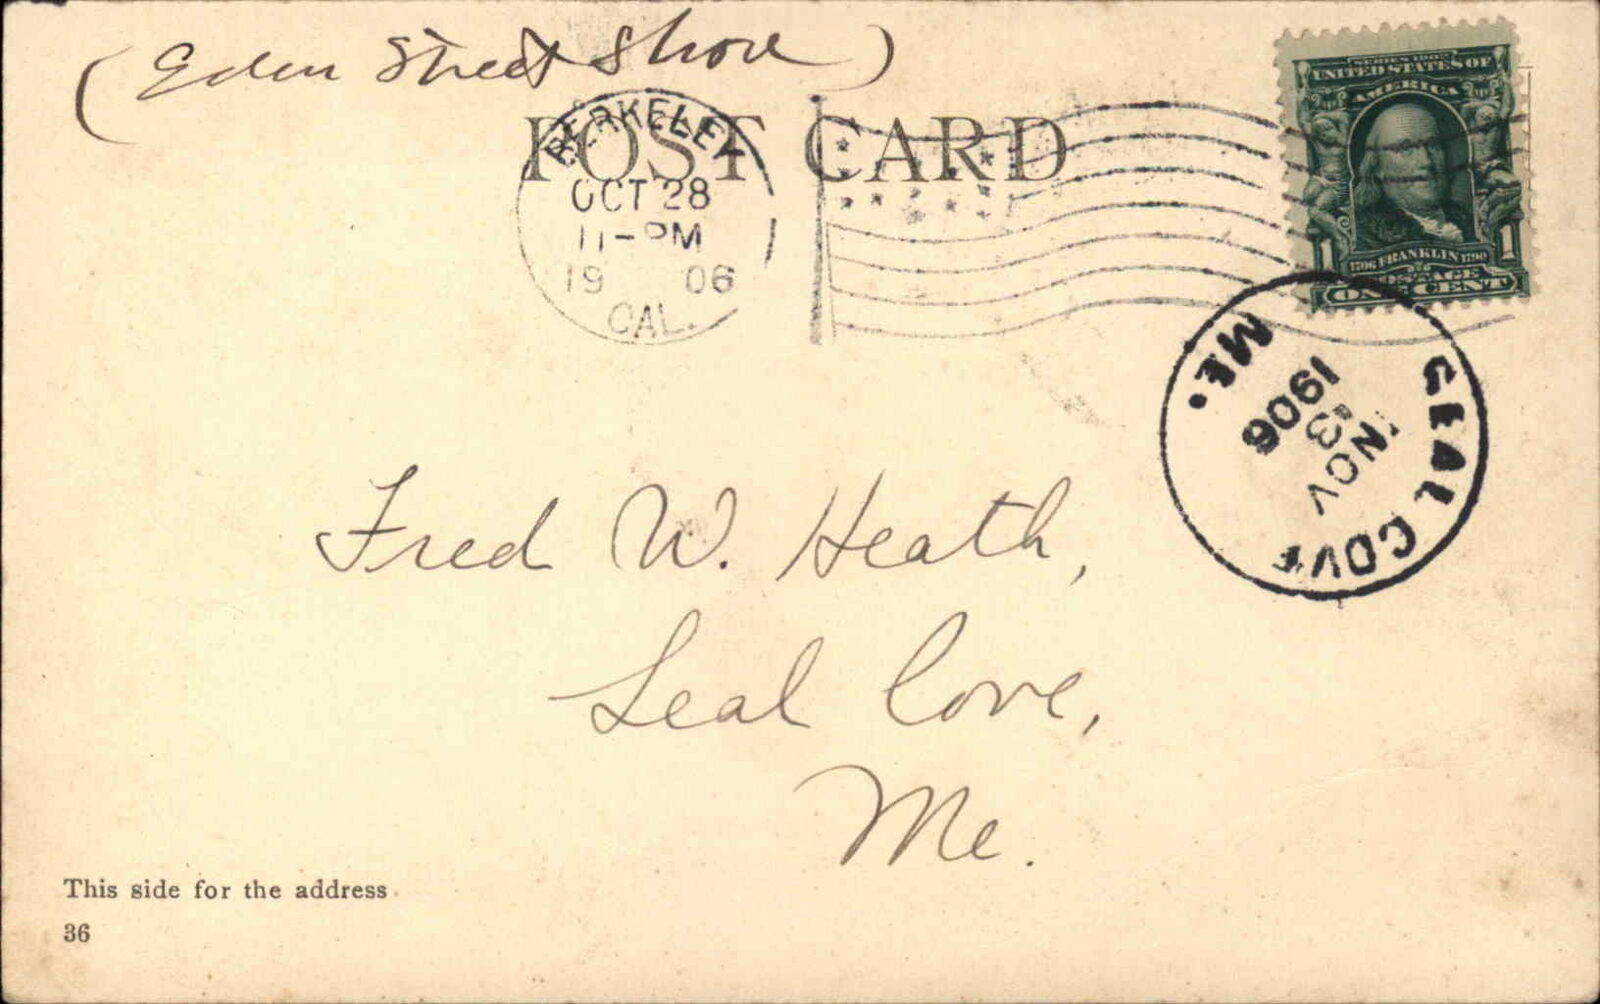 ( Eden Street Shore )
POST CARD
BERKELEY
OCT 28
11-PM
1906
CAL.
SERIES 1902
UNITED STATES OF
AMERICA
1706 FRANKLIN 1790
1 1
POSTAGE
ONE CENT
SEAL COVE
ME.
NOV
3
1906
Fred W. Heath,
Seal Cove,
Me.
This side for the address
36